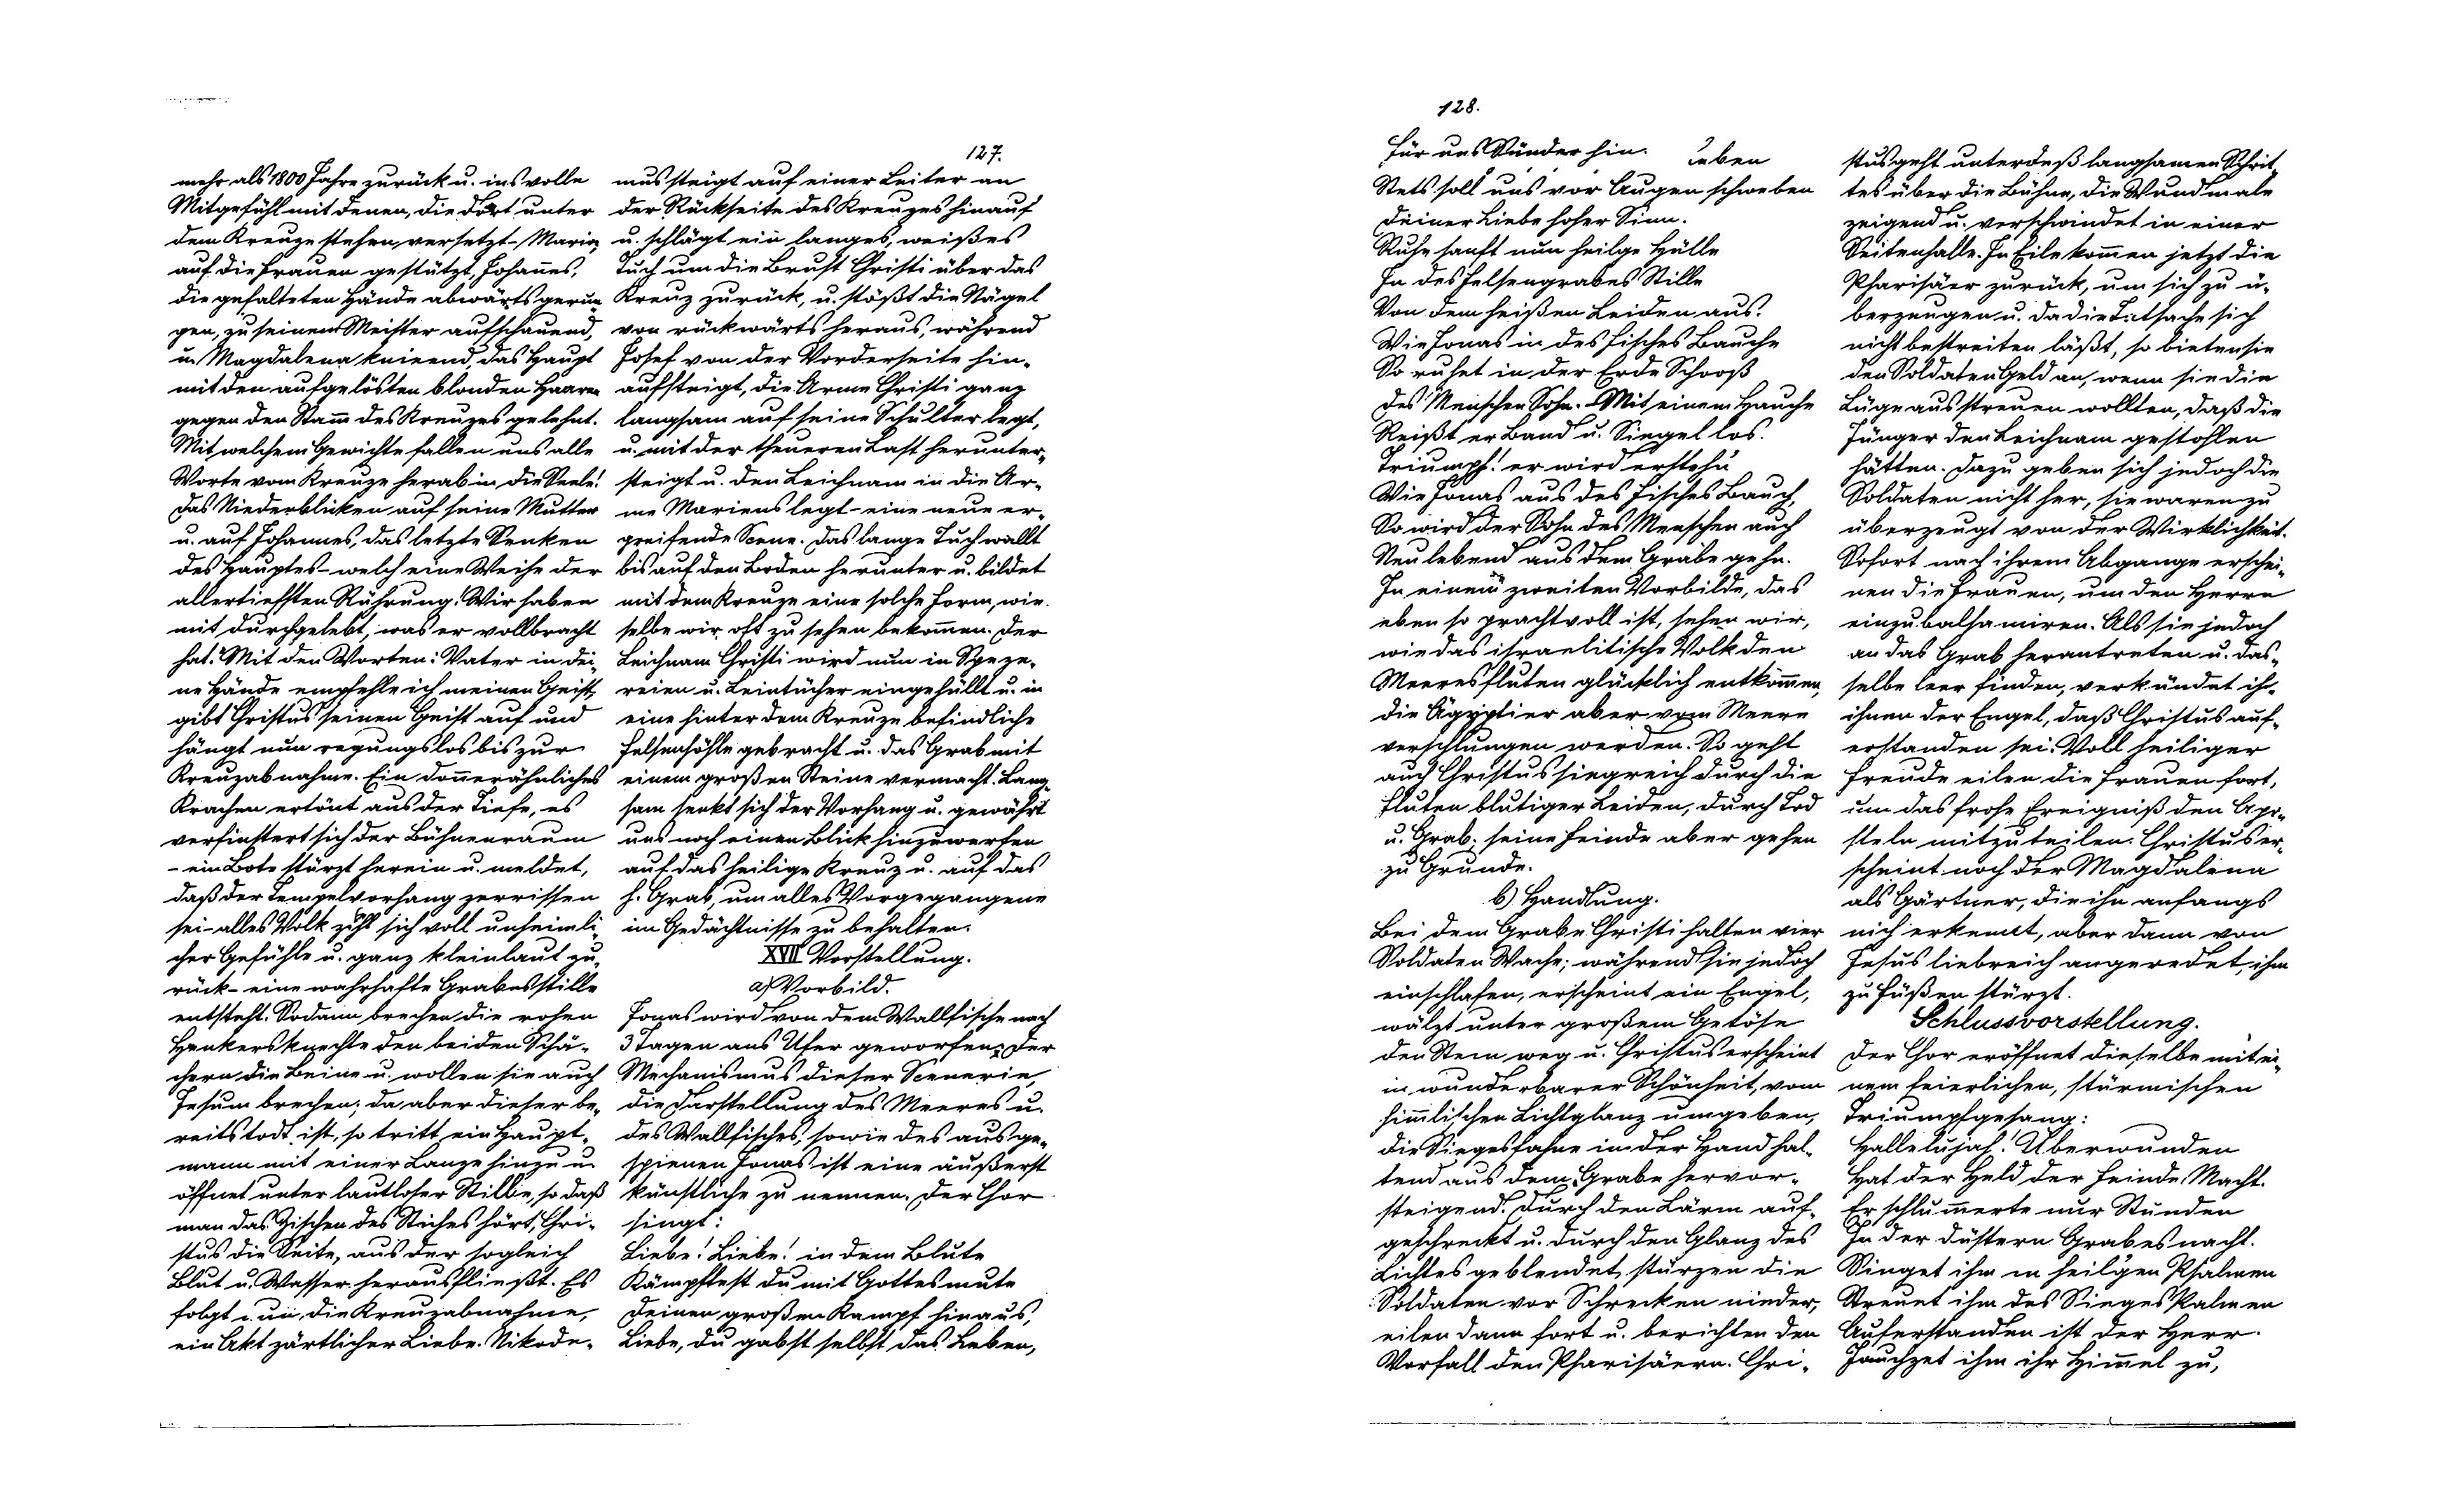 127.
mehr als 1800 Jahre zurück u. ins volle
Mitgefühl mit denen, die dort unter
dem Kreuze stehen, versetzt - Maria,
auf die Frauen gestützt, Johannes,
die gefalteten Hände abwärts gerun-
gen, zu seinem Meister aufschauend,
u. Magdalena knieend, das Haupt
mit den aufgelösten blonden Haaren
gegen den Stam̄ des Kreuzes gelehnt.
Mit welchem Gewichte fallen uns alle
Worte vom Kreuze herab in die Seele!
Das Niederblicken auf seine Mutter
u. auf Johannes, das letzte Senken
des Hauptes - welch eine Weihe der
allertiefsten Rührung! Wir haben
mit durchgelebt, was er vollbracht
hat! Mit den Worten: Vater in dei-
ne Hände empfehle ich meinen Geist,
gibt Christus seinen Geist auf und
hängt nun regungslos bis zur
Kreuzabnahme. Ein don̄erähnliches
Krachen ertönt aus der Tiefe, es
verfinstert sich der Bühnenraum
- ein Bote stürzt herein u. meldet,
daß der Tempelvorhang zerrissen
sei - alles Volk zieht sich voll unheimli-
cher Gefühle u. ganz kleinlaut zu-
rück - eine wahrhafte Grabesstille
entsteht. Sodann brechen die rohen
Henkersknechte den beiden Schä-
chern die Beine u. wollen sie auch
Jesum brechen; da aber dieser be-
reits todt ist, so tritt ein Haupt-
mann mit einer Lanze hinzu u.
öffnet unter lautloser Stille, so daß
man das Zischen des Stiches hört, Chri-
stus die Seite, aus der sogleich
Blut u. Wasser herausfließt. Es
folgt nun die Kreuzabnahme,
ein Akt zärtlicher Liebe. Nikode-
mus steigt auf einer Leiter an
der Rückseite des Kreuzes hinauf
u. schlägt ein langes, weißes
Tuch um die Brust Christi über das
Kreuz zurück, u. stößt die Nägel
von rückwärts heraus, während
Josef von der Vorderseite hin-
aufsteigt, die Arme Christi ganz
langsam auf seine Schulter legt,
u. mit der theueren Last herunter-
steigt u. den Leichnam in die Ar-
me Mariens legt - eine neue er-
greifende Scene. Das lange Tuch wallt
bis auf den Boden herunter u. bildet
mit dem Kreuze eine solche Form, wie
selbe wir oft zu sehen bekom̄en. Der
Leichnam Christi wird nun in Speze-
reien u. Leintücher eingehüllt u. in
eine hinter dem Kreuze befindliche
Felsenhöhle gebracht u. das Grab mit
einem großen Steine vermacht. Lang-
sam senkt sich der Vorhang u. gewährt
uns noch einen Blick hinzuwerfen
auf das heilige Kreuz u. auf das
h. Grab, um alles Vorgegangene
im Gedächtnisse zu behalten.
XVII Vorstellung.
a) Vorbild.
Jonas wird von dem Wallfische nach
3 Tagen ans Ufer geworfen; Der
Mechanismus dieser Scenerie,
die Darstellung des Meeres u.
des Wallfisches, sowie des ausge-
spienen Jonas ist eine äußerst
künstliche zu nennen. Der Chor
singt:
Liebe! Liebe! in dem Blute
Kämpftest du mit Gottesmute
Deinen großen Kampf hinaus,
Liebe, du gabst selbst das Leben,
128.
Für uns Sünder hin.
Stets soll uns vor Augen schweben
Deiner Liebe hoher Sinn.
Ruhe sanft nun heilge Hülle
In des Felsengrabes Stille
Von dem heißen Leiden aus.
Wie Jonas in des Fisches Bauche
So ruhet in der Erde Schooß
Des Menschen Sohn. Mit einem Hauche
Reißt er Band u. Siegel los.
Triumpf! er wird erstehn
Wie Jonas aus des Fisches Bauch,
So wird der Sohn des Menschen auch
Neu lebend aus dem Grabe gehn.
In einem zweiten Vorbilde, das
eben so prachtvoll ist, sehen wir,
wie das israelitische Volk den
Meeresfluten glücklich entkom̄en,
die Ägyptier aber vom Meere
verschlungen werden. So geht
auch Christus siegreich durch die
Fluten blutiger Leiden, durch Tod
u. Grab; seine Feinde aber gehen
zu Grunde.
b) Handlung.
Bei dem Grabe Christi halten vier
Soldaten Wache; während sie jedoch
einschlafen, erscheint ein Engel,
wälzt unter großem Getöse
den Stein weg u. Christus erscheint
in wunderbarer Schönheit, vom
him̄lischen Lichtglanz umgeben,
die Siegesfahne in der Hand hal-
tend aus dem Grabe hervor-
steigend. Durch den Lärm auf-
geschreckt u. durch den Glanz des
Lichtes geblendet, stürzen die
Soldaten vor Schrecken nieder,
eilen dann fort u. berichten den
Vorfall den Pharisäern. Chri-
stus geht unterdeß langsamen Schrit-
tes über die Bühne, die Wundmale
zeigend u. verschwindet in einer
Seitenhalle. In Eile kom̄en jetzt die
Pharisäer zurück, um sich zu ü-
berzeugen u. da die Tatsache sich
nicht bestreiten läßt, so bieten sie
den Soldaten Geld an, wenn sie die
Lüge ausstreuen wollten, daß die
Jünger den Leichnam gestohlen
hätten. Dazu geben sich jedoch die
Soldaten nicht her, sie waren zu
überzeugt von der Wirklichkeit.
Sofort nach ihrem Abgange erschei-
nen die Frauen, um den Herrn
einzubalsamiren. Als sie jedoch
an das Grab herantreten u. das-
selbe leer finden, verkündet ih-
ihnen der Engel, daß Christus auf-
erstanden sei. Voll heiliger
Freude eilen die Frauen fort,
um das frohe Ereigniß den Apo-
steln mitzuteilen. Christus er-
scheint noch der Magdalena
als Gärtner, die ihn anfangs
nich erkennt, aber dann von
Jesus liebreich angeredet, ihm
zu Füßen stürzt.
Schlussvorstellung.
Der Chor eröffnet dieselbe mit ei-
nem feierlichen, stürmischen
Triumpfgesang:
Hallelujah! Überwunden
Hat der Held der Feinde Macht.
Er schlum̄erte nur Stunden
In der düstern Grabesnacht.
Singet ihm in heilgen Psalmen
Streuet ihm des Sieges Palmen
Auferstanden ist der Herr.
Jauchzet ihm ihr Him̄el zu,